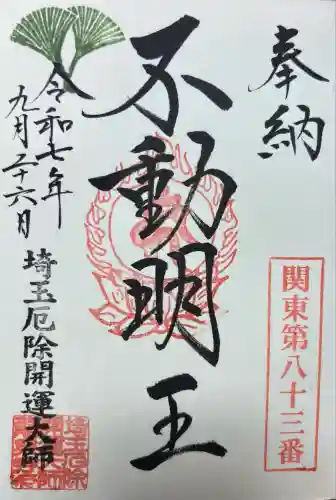 奉納
関東第八十三番
不動明王
令和七年
九月二十六月
埼玉厄除開運大師